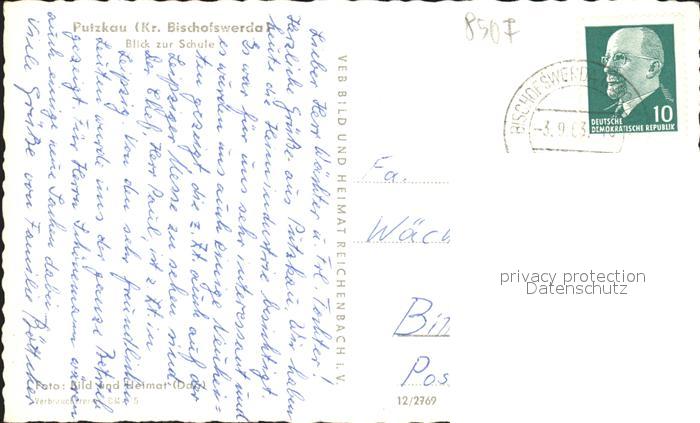 Putzkau (Kr. Bischofswerda)
Blick zur Schule
Lieber Herr Wächter u. Frl. Tochter!
Herzliche Grüße aus Putzkau. Wir haben
heute die Heimindustrie besichtigt.
Es war für uns sehr interessant und
es wurden uns auch einige Neuhei=
ten gezeigt die z. Zt. auch auf der
Leipziger Messe zu sehen sind
der Chef, Herr Paul, ist z. Zt. in
Leipzig. Von den sehr freundlichen
Leuten wurde uns der ganze Betrieb
gezeigt. Für Herrn waren
auch einige neue Sachen dabei.
Viele Grüße von Familie Böttcher
Foto: Bild und Heimat (Dag)
VEB BILD UND HEIMAT REICHENBACH i. V.
12/2769
8507
BISCHOFSWERDA
-3.9.63.
10
DEUTSCHE
DEMOKRATISCHE REPUBLIK
Fa.
Wäc
Bi
Pos
privacy protection
Datenschutz